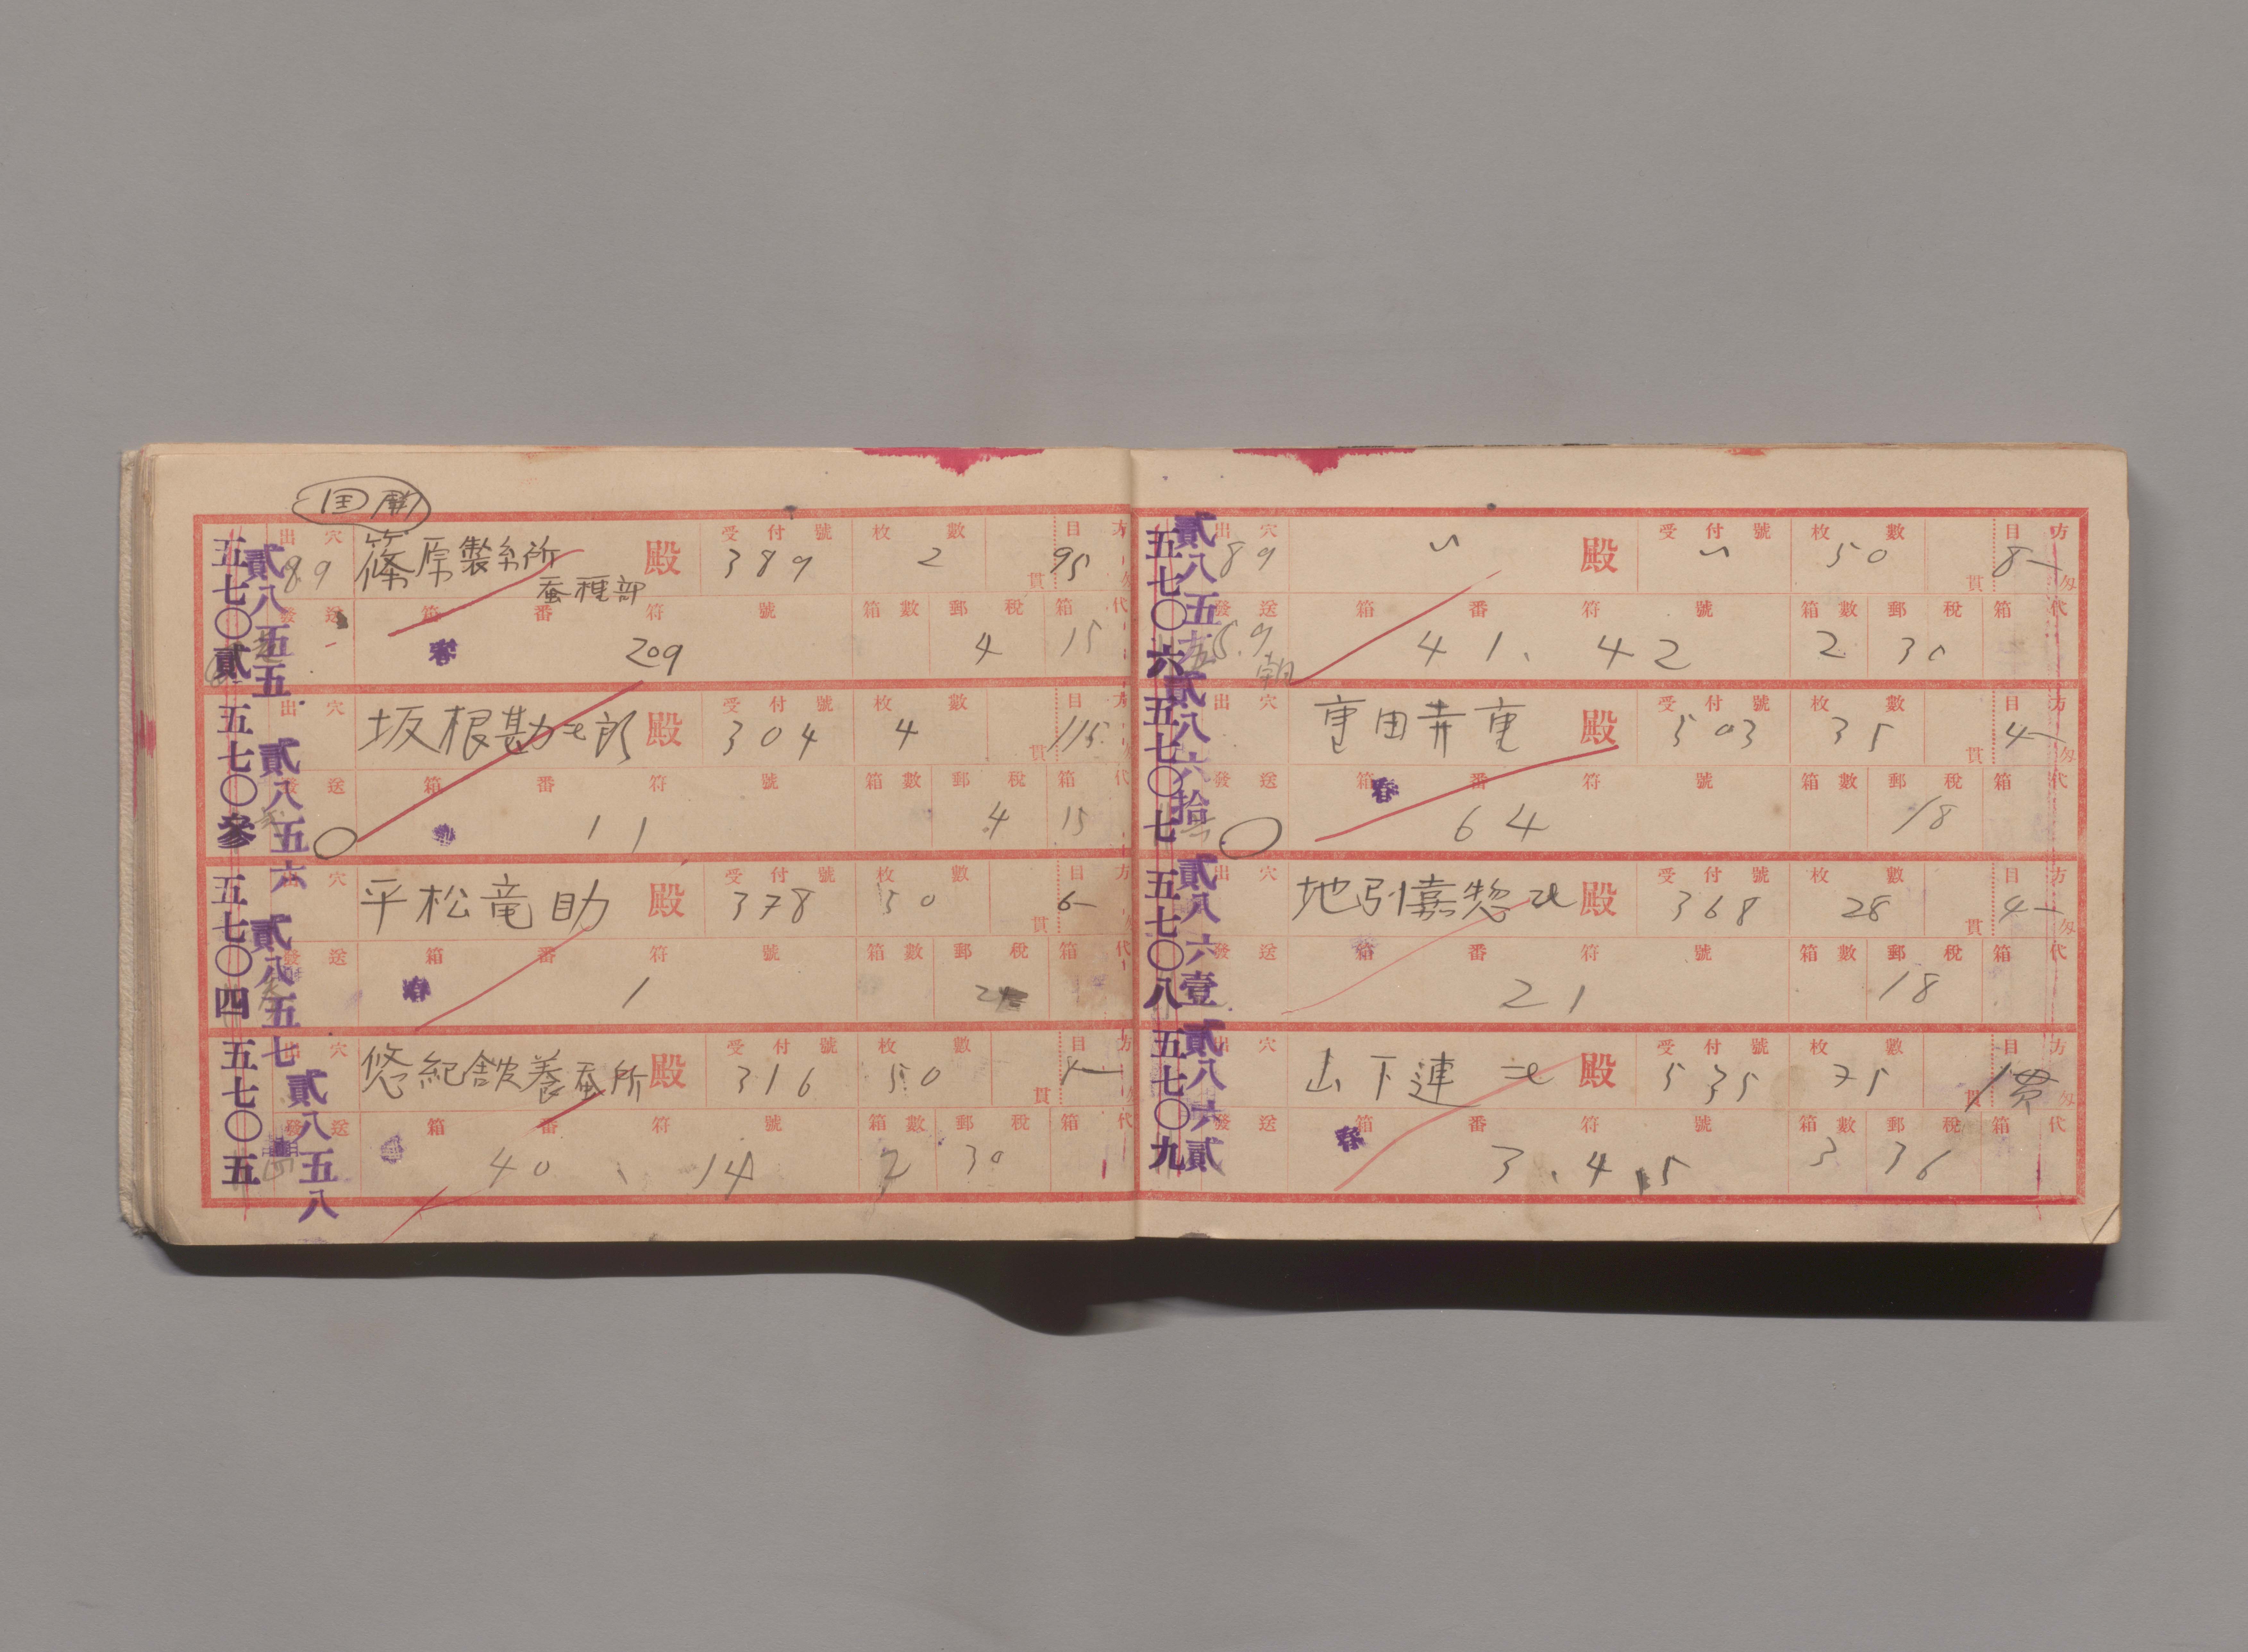 出穴 89 篠原製糸所 蚕種部 殿 受付號 389 枚數 2 貫 目方 95
發送 箱番符號 春 209 箱數 郵税 4 箱代 15
五七〇貳 貳八五五
出穴 坂根勘 郎 殿 受付號 304 枚數 4 貫 目方 115
發送 箱番符號 春 11 箱數 郵税 4 箱代 15
五七〇參 貳八五六
出穴 平松竜助 殿 受付號 378 枚數 50 目方 6-
發送 箱番符號 春 1 箱數 郵税 箱代
五七〇四 貳八五七
出穴 悠紀館 養蚕所 殿 受付號 316 枚數 50 貫 目方
發送 箱番符號 春 40、14 箱數 2 郵税 30 箱代
五七〇五 貳八五八
出穴 89 〃 殿 受付號 〃 枚數 50 貫 目方 8- 匁
發送 5.9 朝 箱番符號 41、42 箱數 2 郵税 30 箱代
五七〇六 貳八五
出穴 重田 重 殿 受付號 503 枚數 35 貫 目方 4- 匁
發送 箱番符號 春 64 箱數 郵税 18 箱代
五七〇七 貳八六拾
出穴 地引嘉惣 殿 受付號 368 枚數 28 貫 目方 4- 匁
發送 箱番符號 21 箱數 郵税 18 箱代
五七〇八 貳八六壹
出穴 山下連 殿 受付號 535 枚數 75 貫 目方 1貫 匁
發送 箱番符號 春 3、4、5 箱數 3 郵税 36 箱代
五七〇九 貳八六貳